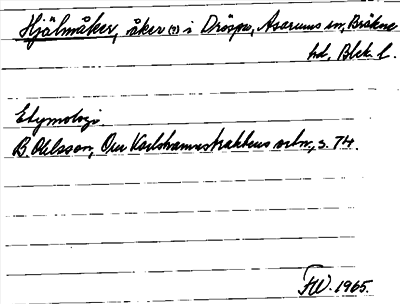 Hjälmåker, åker (?) i Dröspe, Asarums sn, Bräkne
hd, Blek. l.
Etymologi.
B. Ohlsson, Om Karlshamnstraktens ortn., s. 74.
FW. 1965.